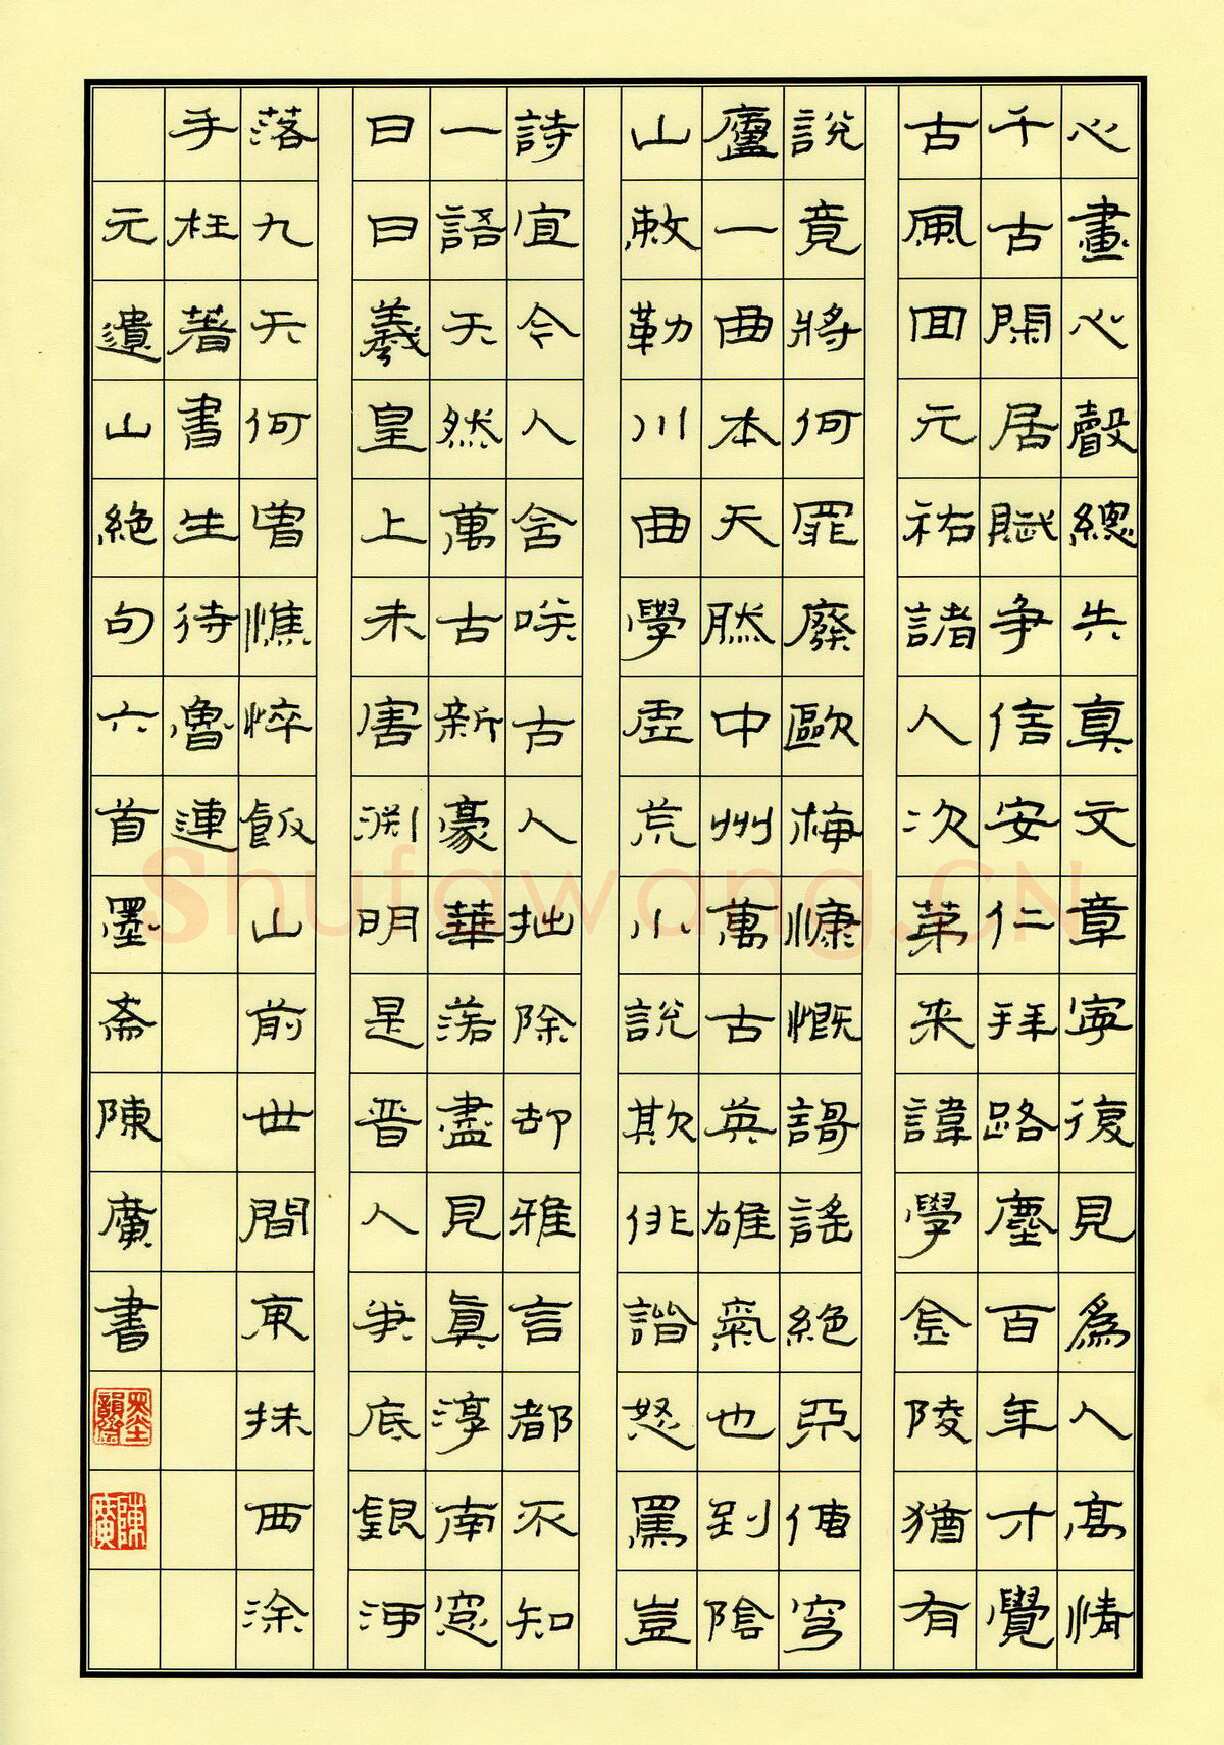 心畫心聲總失真文章寧復見爲人高情
千古閑居賦爭信安仁拜路塵百年才覺
古風回元祐諸人次第来諱學金陵猶有
說竟將何罪廢歐梅慷慨謌謠絕不傳穹
廬一曲本天然中州萬古英雄氣也到陰
山敕勒川曲學虛荒小說欺俳諧怒罵豈
詩宜今人合咲古人拙除却雅言都不知
一語天然萬古新豪華落盡見真淳南窗
白日羲皇上未害渊明是晉人筆底銀河
落九天何曾憔悴飯山前世間東抹西涂
手枉著書生待魯連
元遺山絕句六首墨齋陳廣書
陳廣
Shufawang.CN